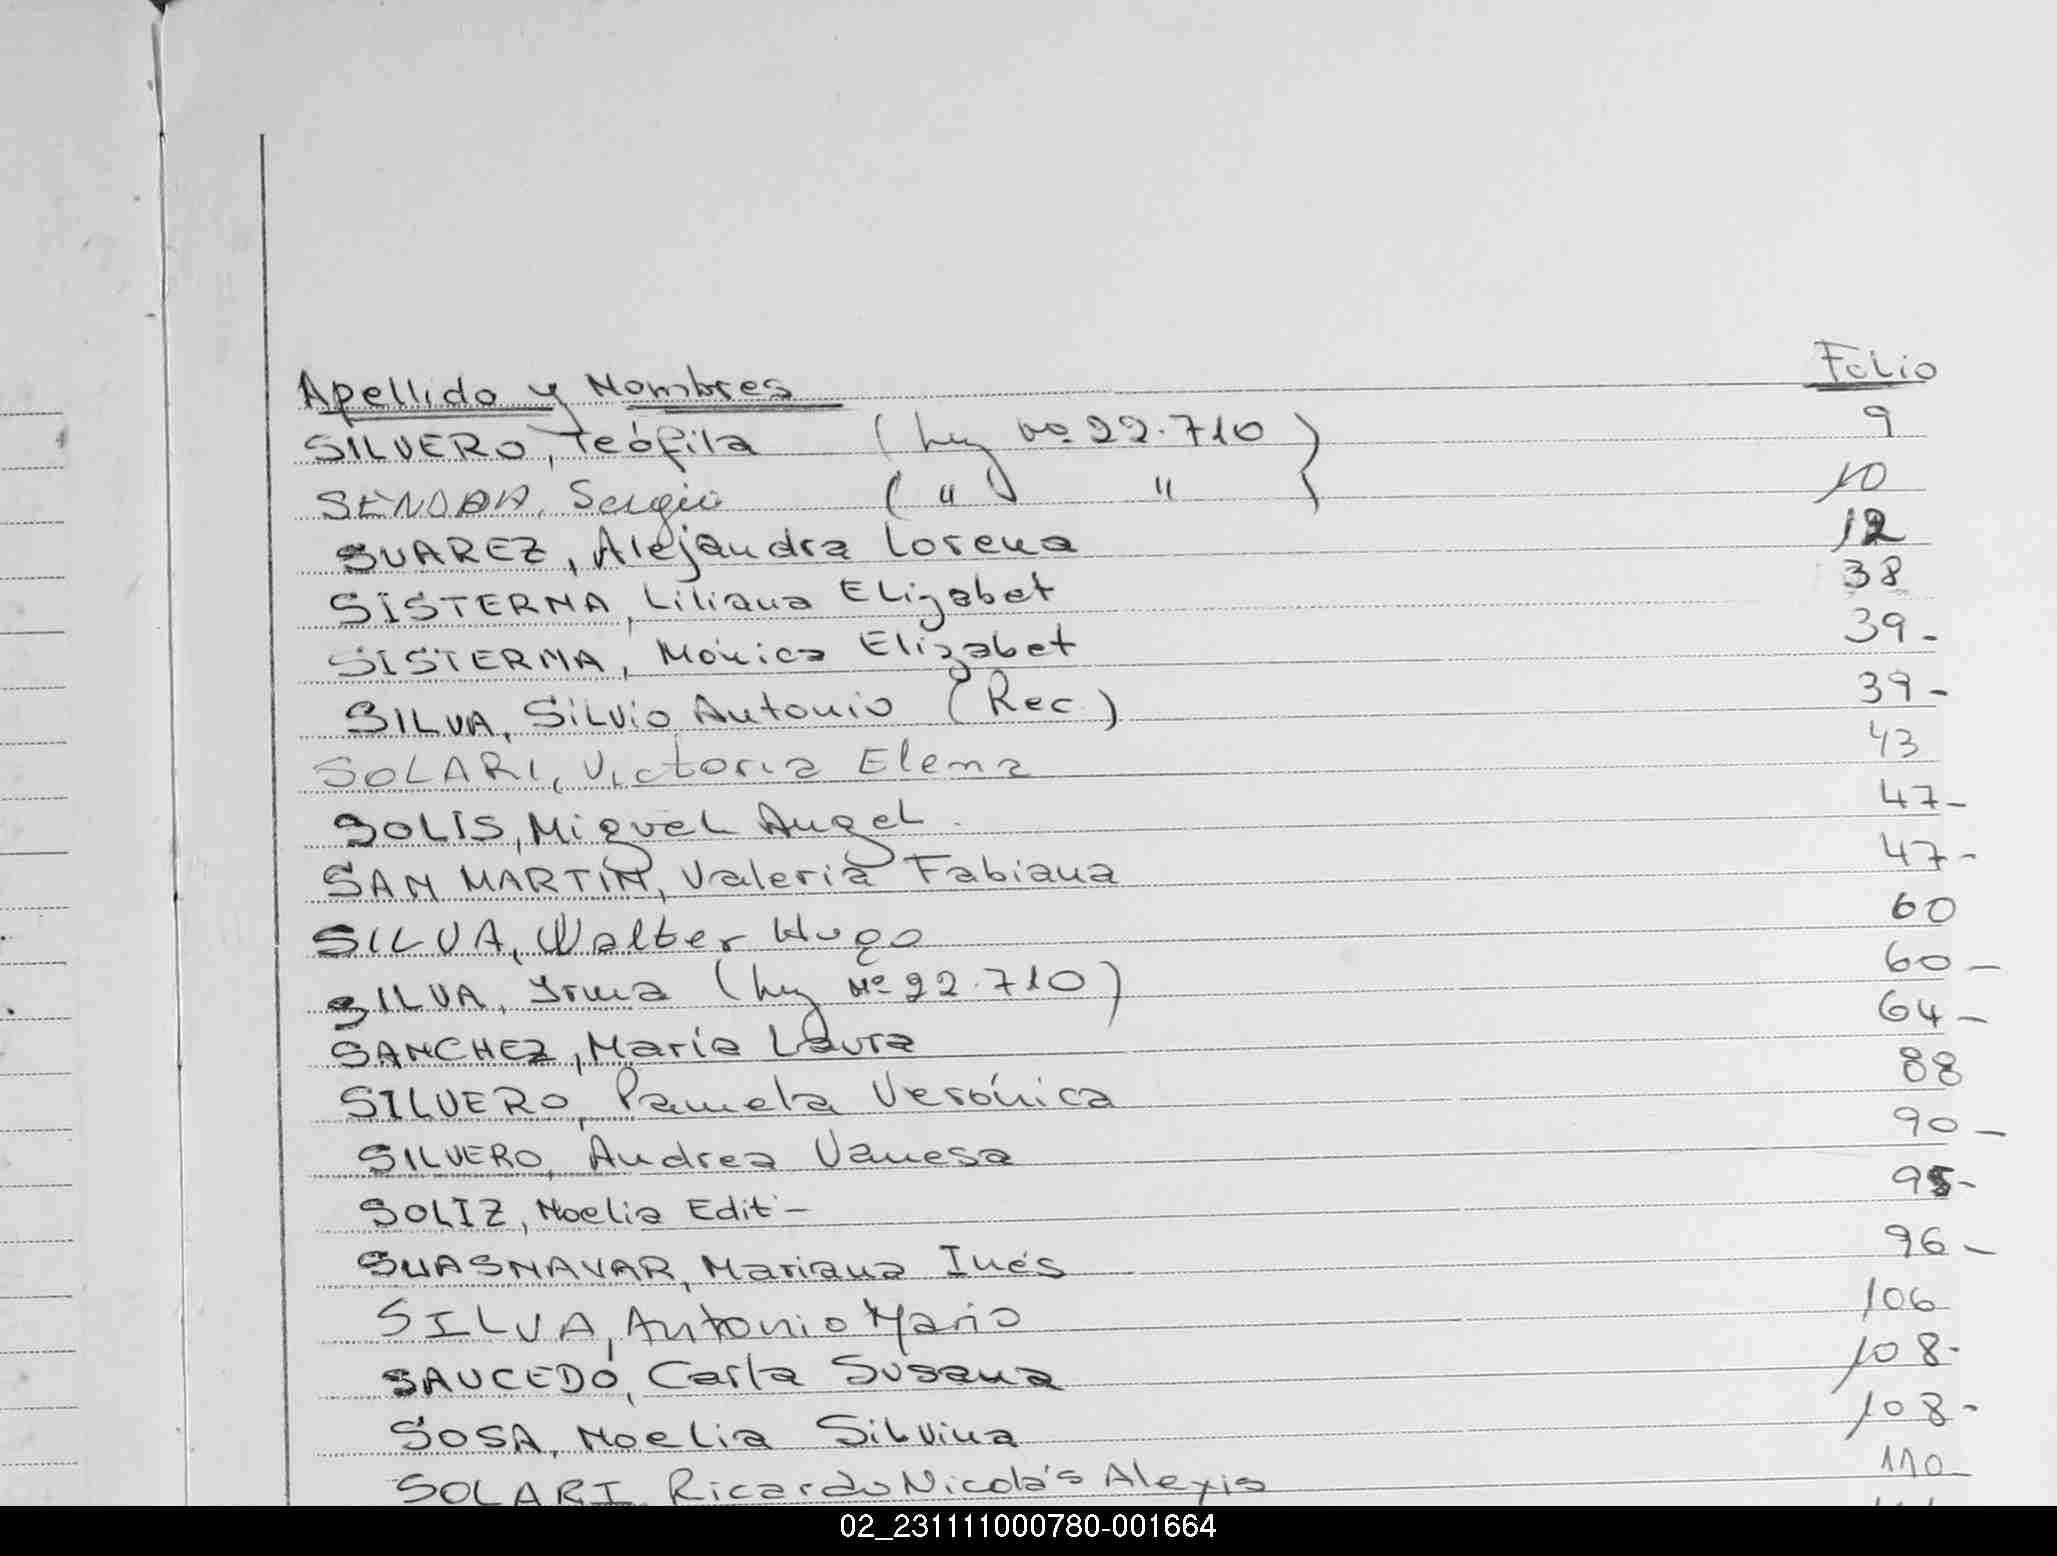 Apellido y Nombres Folio
SILVERO, Teófila (Ley Nº 22.710) 9
Sergio ( " " ) 10
SUAREZ, Alejandra Lorena 12
SISTERNA, Liliana Elizabet 38
SISTERNA, Mónica Elizabet 39-
SILVA, Silvio Antonio (Rec.) 39-
SOLARI, Victoria Elena 43
SOLIS, Miguel Angel. 47-
SAN MARTIN, Valeria Fabiana 47-
SILVA, Walter Hugo 60
SILVA, Yrma (Ley Nº 22.710) 60-
SANCHEZ, María Laura 64-
SILVERO, Pamela Verónica 88
SILVERO, Andrea Vanesa 90-
SOLIZ, Noelia Edit- 95-
SUASNAVAR, Mariana Inés 96-
SILVA, Antonio Mario 106
SAUCEDO, Carla Susana 108-
SOSA, Noelia Silvina 108-
SOLARI Ricardo Nicolás Alexis 110-
02_231111000780-001664